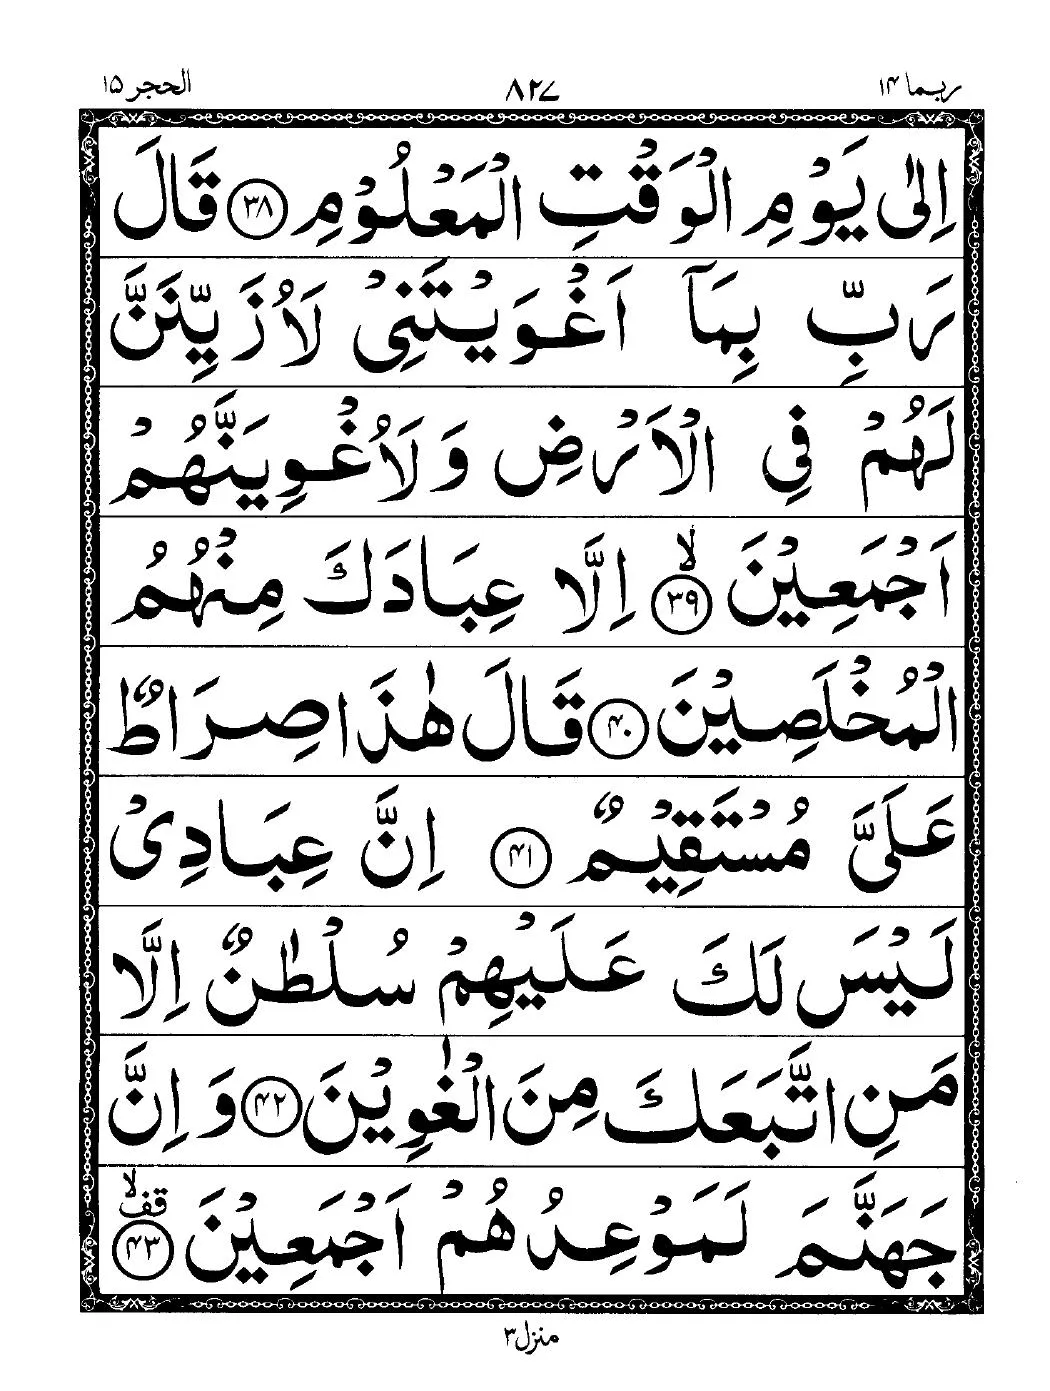 ربما ۱۴
۸۲۷
الحجر ۱۵
اِلٰى يَوْمِ الْوَقْتِ الْمَعْلُوْمِ ۳۸ قَالَ
رَبِّ بِمَاۤ اَغْوَيْتَنِىْ لَاُزَيِّنَنَّ
لَهُمْ فِى الْاَرْضِ وَلَاُغْوِيَنَّهُمْ
اَجْمَعِيْنَ ۙ ۳۹ اِلَّا عِبَادَكَ مِنْهُمُ
الْمُخْلَصِيْنَ ۴۰ قَالَ هٰذَا صِرَاطٌ
عَلَىَّ مُسْتَقِيْمٌ ۴۱ اِنَّ عِبَادِىْ
لَيْسَ لَكَ عَلَيْهِمْ سُلْطٰنٌ اِلَّا
مَنِ اتَّبَعَكَ مِنَ الْغٰوِيْنَ ۴۲ وَاِنَّ
جَهَنَّمَ لَمَوْعِدُهُمْ اَجْمَعِيْنَ قف ۙ ۴۳
منزل ۳